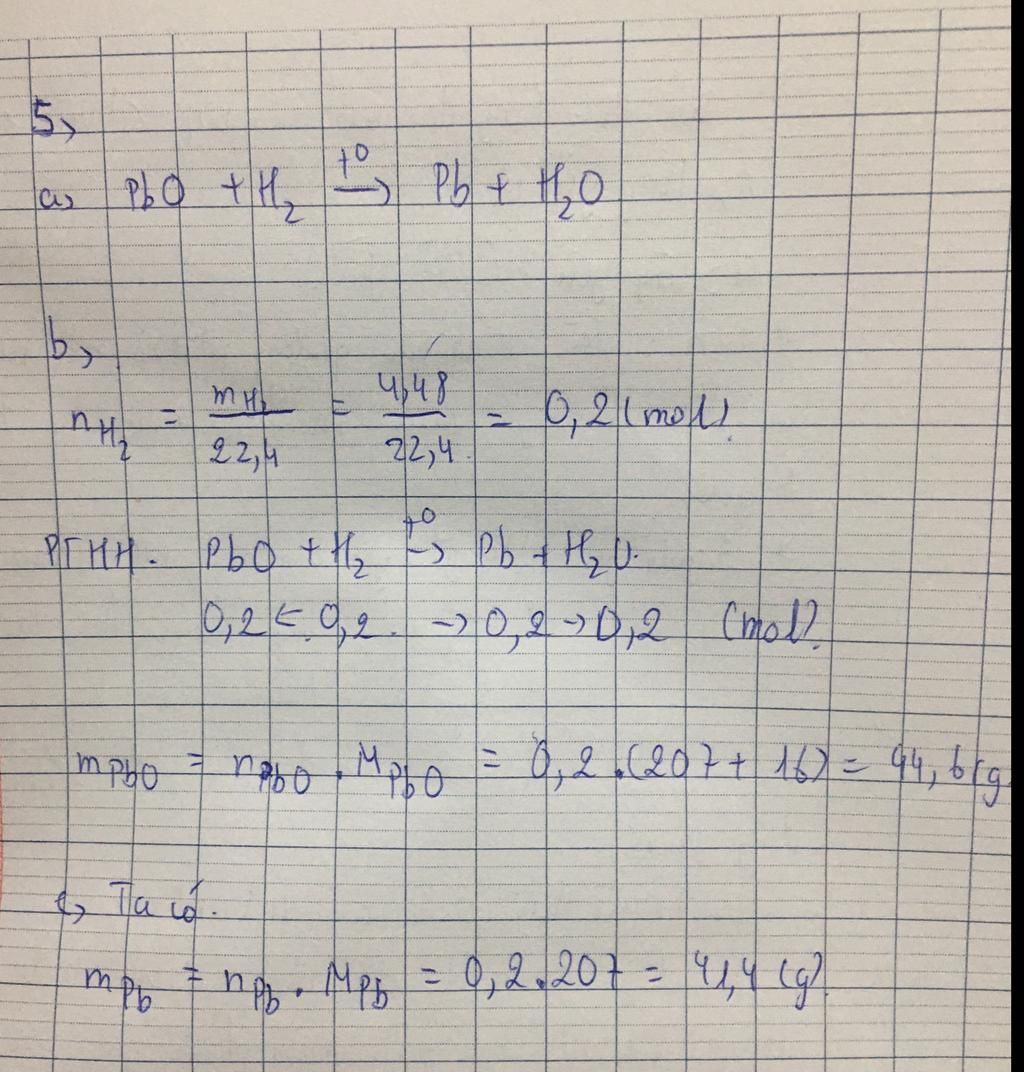 5,
a, PbO + H₂ →(t⁰) Pb + H₂O
b,
n_H₂ = m_H₂/22,4 = 4,48/22,4 = 0,2 (mol).
PTHH. PbO + H₂ →(t⁰) Pb + H₂O.
0,2 ← 0,2. → 0,2 → 0,2 (mol).
m_PbO = n_PbO . M_PbO = 0,2.(207 + 16) = 44,6 (g
c, Ta có.
m_Pb = n_Pb . M_Pb = 0,2.207 = 41,4 (g)